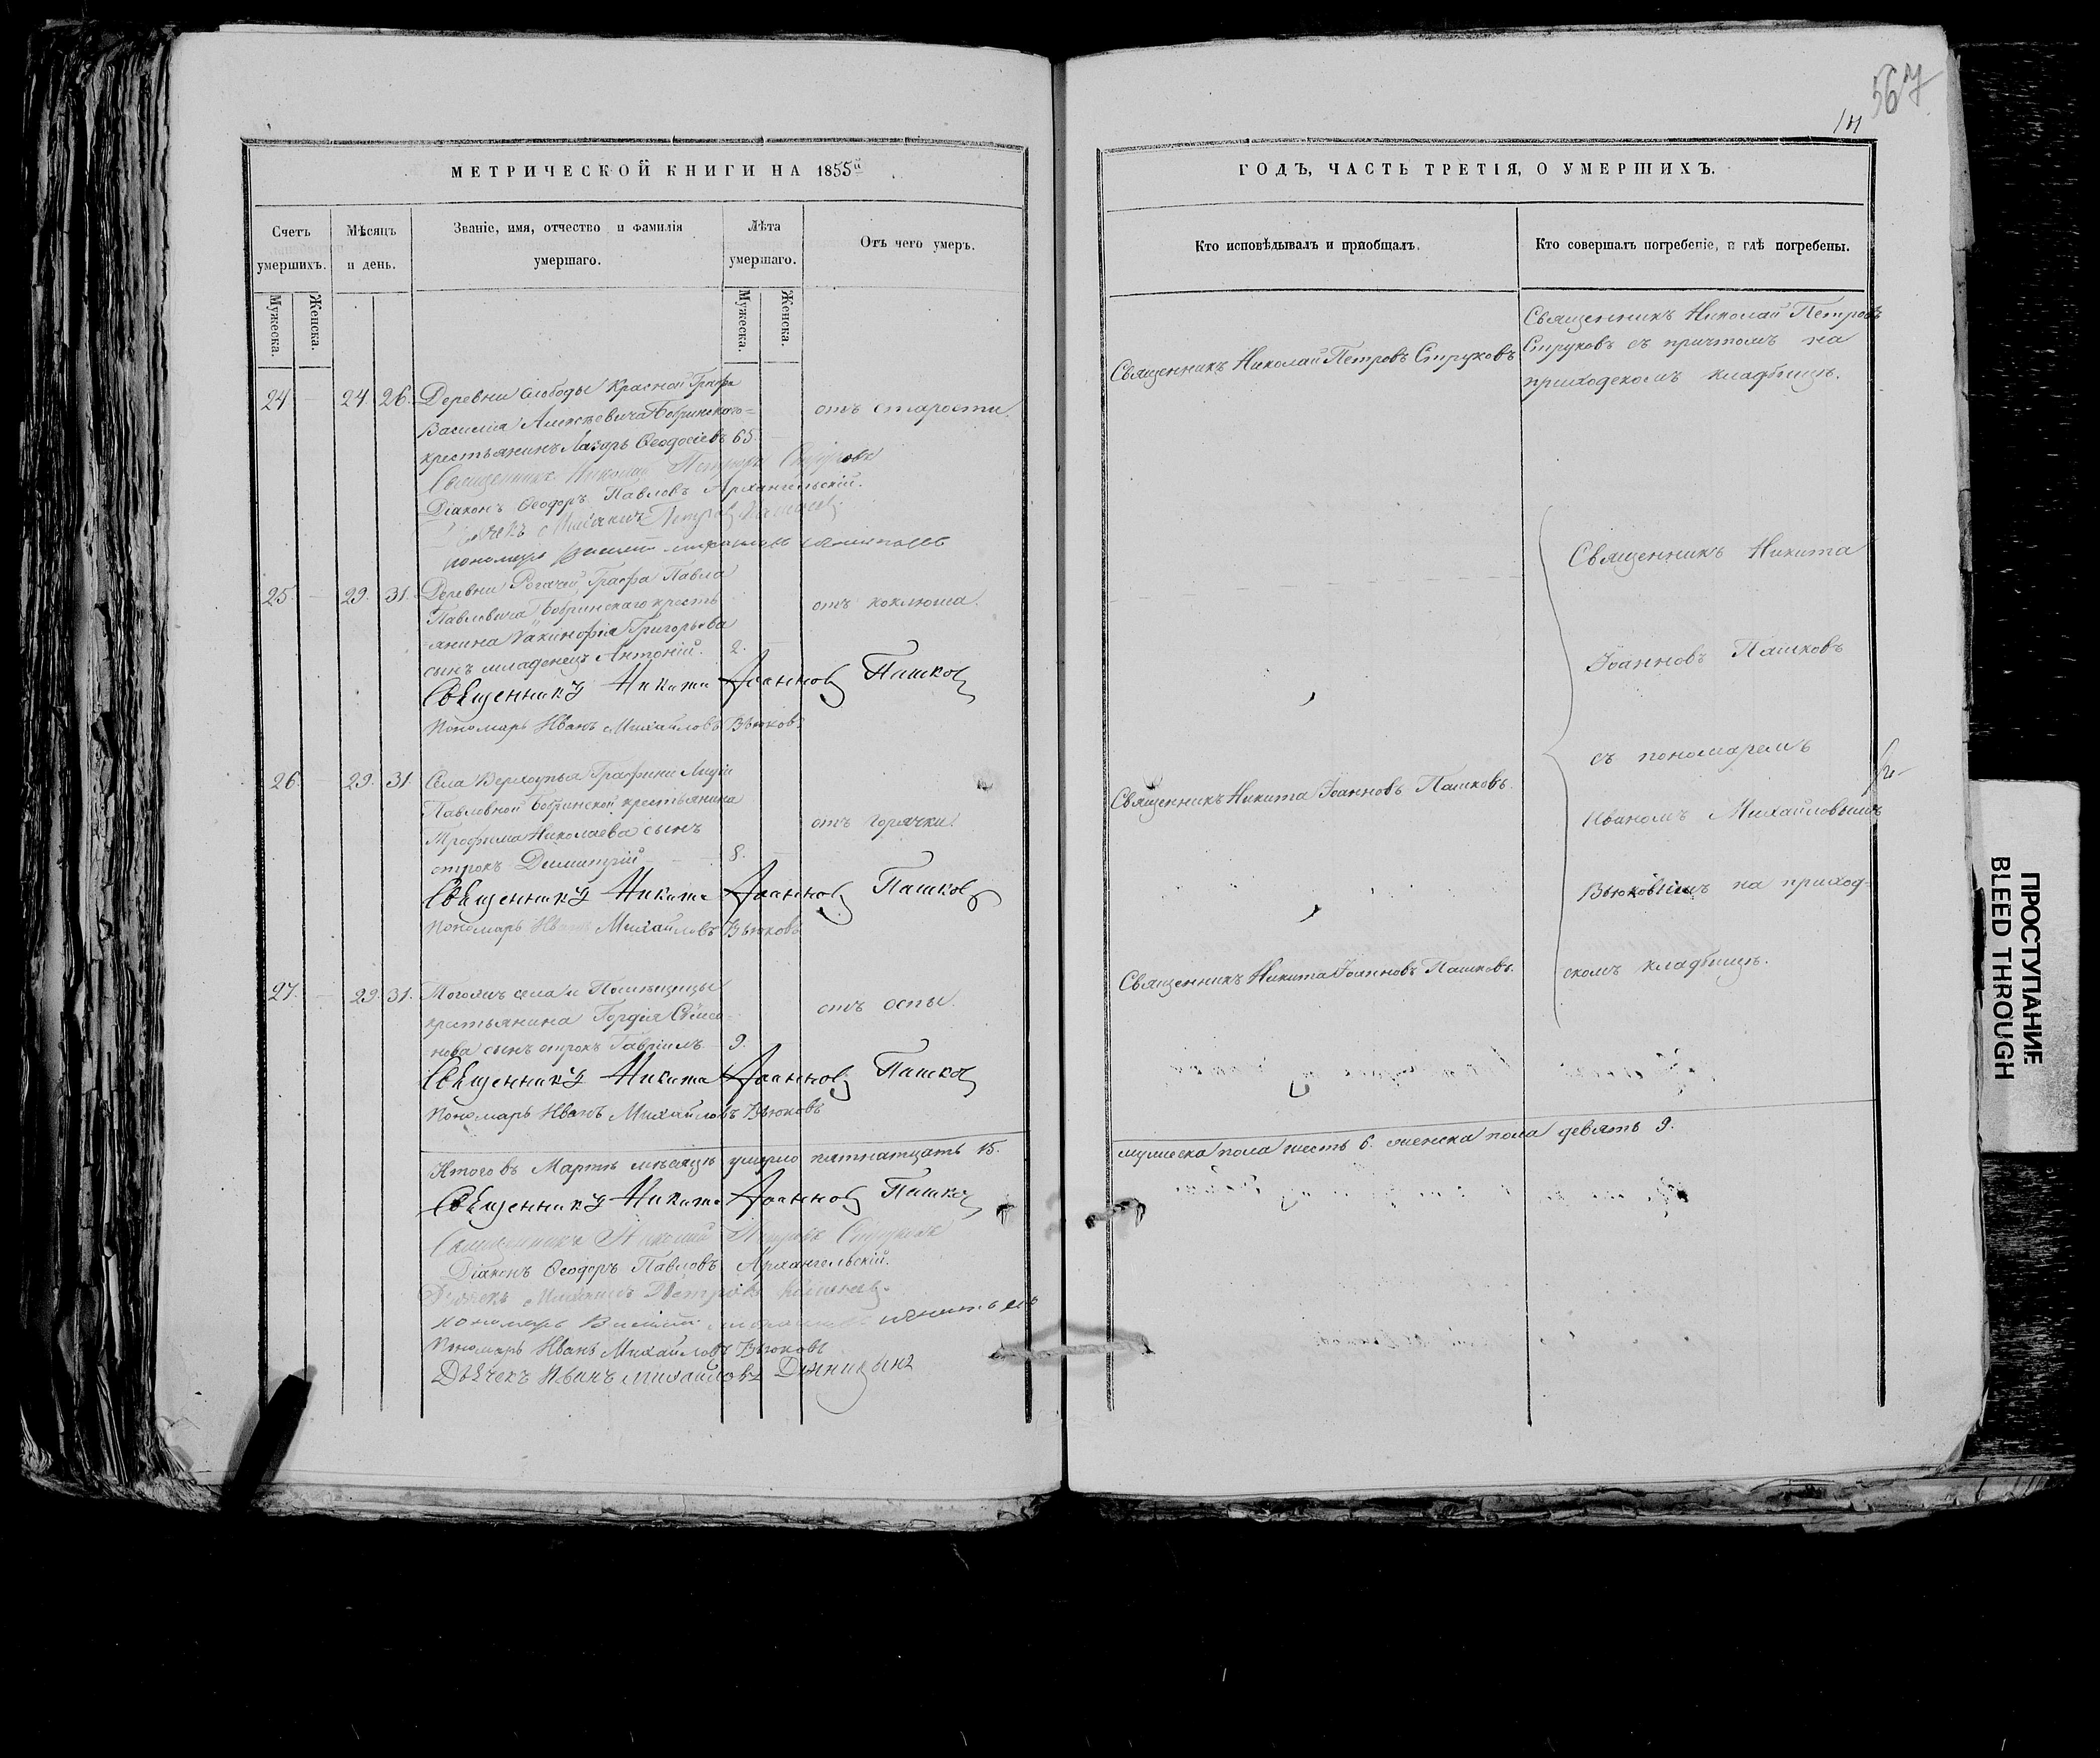 МЕТРИЧЕСКОЙ КНИГИ НА 1855й
Счетъ умершихъ.
Мѣсяцъ и день.
Званіе, имя, отчество и фамилія умершаго.
Лѣта умершаго.
Отъ чего умеръ.
Мужеска.
Женска.
Мужеска.
Женска.
24 — 24 26. Деревни Слободы Красной Графа
Василія Алексѣевича Бобринскаго=
крестьянинъ Лазарь Ѳеодосіевъ 65. — отъ старости.
Священникъ Николай Петровъ Струковъ
Діаконъ Ѳеодоръ Павловъ Архангельскій.
Петровъ
пономарь
25. — 29. 31. Деревни Рогачей Графа Павла
Павловича Бобринскаго кресть
янина Іакинфія Григорьева
сынъ младенецъ Антоній. 2. — отъ коклюша.
Священникъ Никита Іоанновъ Пашковъ
Пономарь Иванъ Михайловъ Вьюковъ.
26. — 29. 31. Села Верхоупья Графини Лидіи
Павловной Бобринской крестьянина
Трофима Николаева сынъ
отрокъ Димитрій — 8. — отъ горячки.
Священникъ Никита Іоанновъ Пашковъ
Пономарь Иванъ Михайловъ Вьюковъ
27. — 29. 31. Тогожъ села и Помѣщицы
крестьянина Гордѣя Симео-
нова сынъ отрокъ Гавріилъ — 9. — отъ оспы.
Священникъ Никита Іоанновъ Пашковъ
Пономарь Иванъ Михайловъ Вьюковъ
Итого въ Мартѣ мѣсяцѣ умерло пятнатцать 15.
Священникъ Никита Іоанновъ Пашковъ
Священникъ Николай Петровъ Струковъ
Діаконъ Ѳеодоръ Павловъ Архангельскій.
Дьячекъ Петровъ
пономарь
Пономарь Иванъ Михайловъ Вьюковъ
Дьячекъ Иванъ Михайловъ
567
ГОДЪ, ЧАСТЬ ТРЕТІЯ, О УМЕРШИХЪ.
Кто исповѣдывалъ и пріобщалъ.
Кто совершалъ погребеніе, и гдѣ погребены.
Священникъ Николай Петровъ Струковъ
Священникъ Николай Петровъ
Струковъ съ причтомъ на
приходскомъ кладбищѣ.
Священникъ Никита
Іоанновъ Пашковъ
съ пономаремъ
Священникъ Никита Іоанновъ Пашковъ.
Иваномъ Михайловымъ
Вьюковымъ на приход-
скомъ кладбищѣ.
Священникъ Никита Іоанновъ Пашковъ.
мужеска пола шесть 6. женска пола девять 9.
ПРОСТУПАНИЕ
BLEED THROUGH